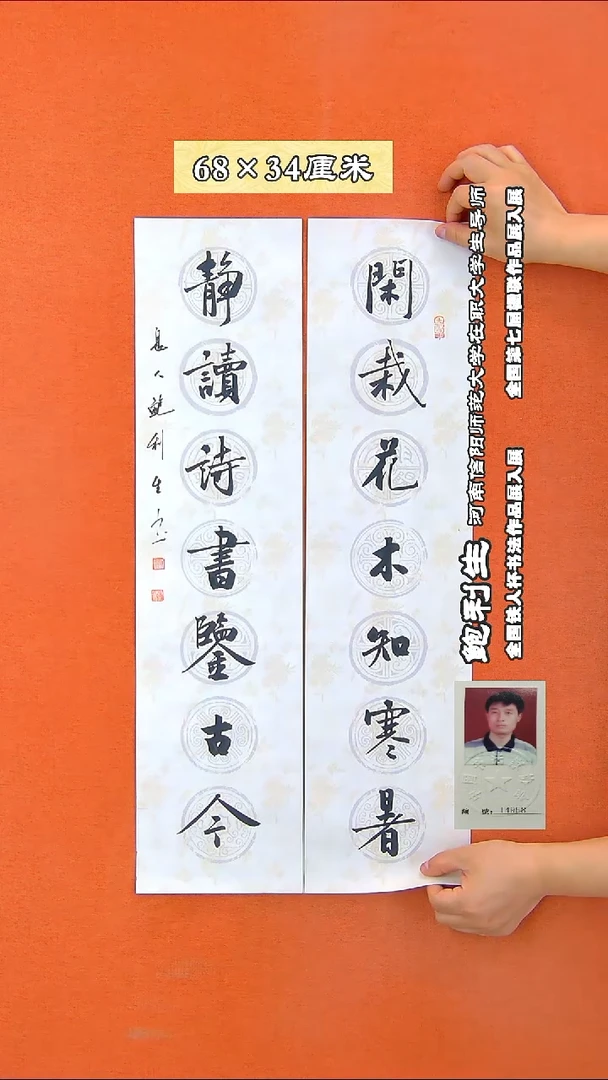 68×34厘米
閑栽花木知寒暑
靜讀詩書鑒古今
鲍利生
河南信阳师范大学在职大学生导师
全国第七届楹联作品展入展
全国铁人杯书法作品展入展